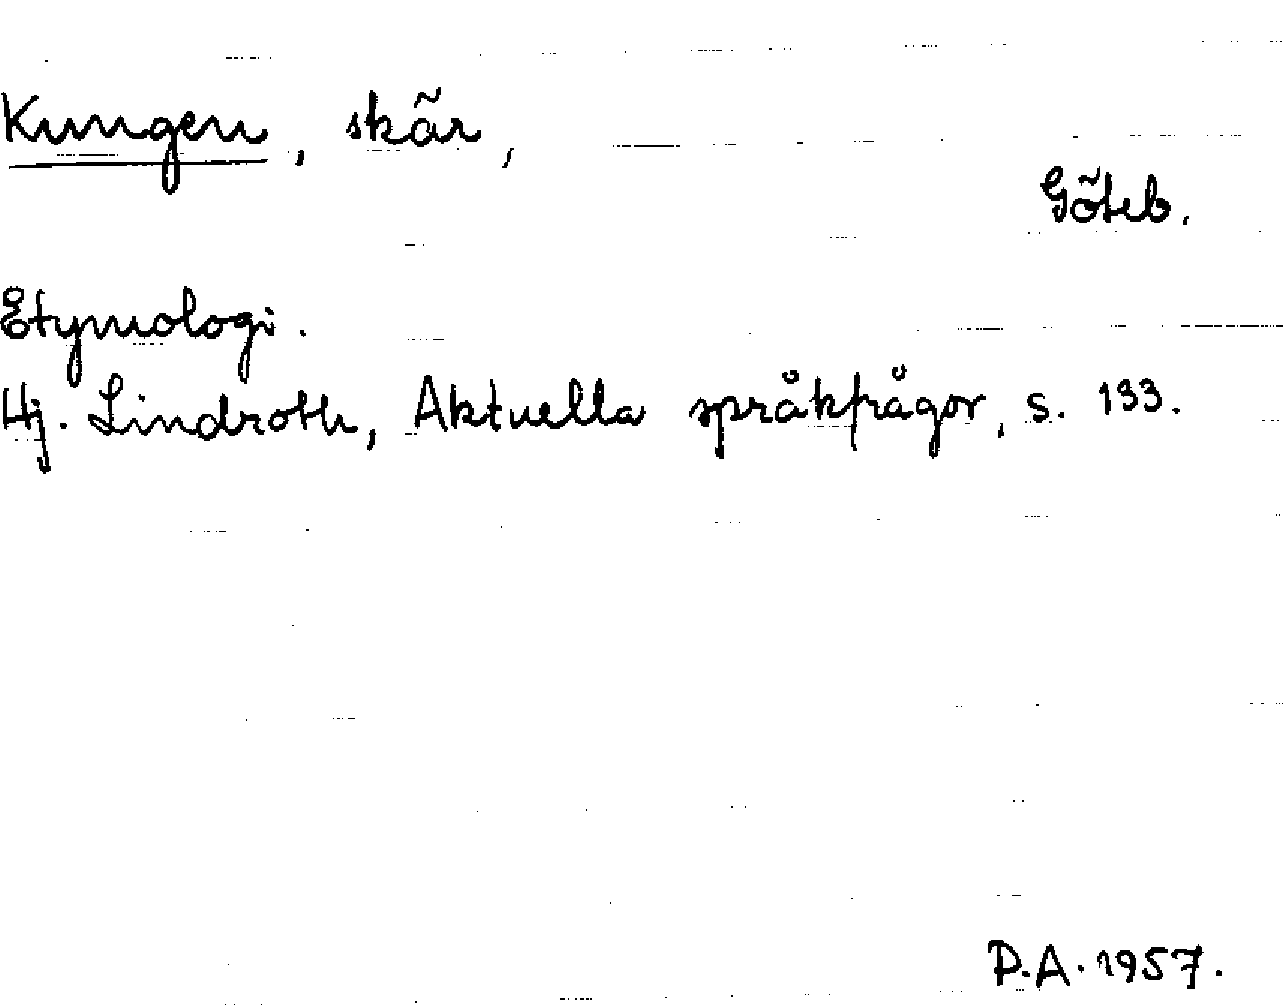 Kungen, skär,
Göteb.
Etymologi.
Hj. Lindroth, Aktuella språkfrågor, s. 133.
P.A. 1957.